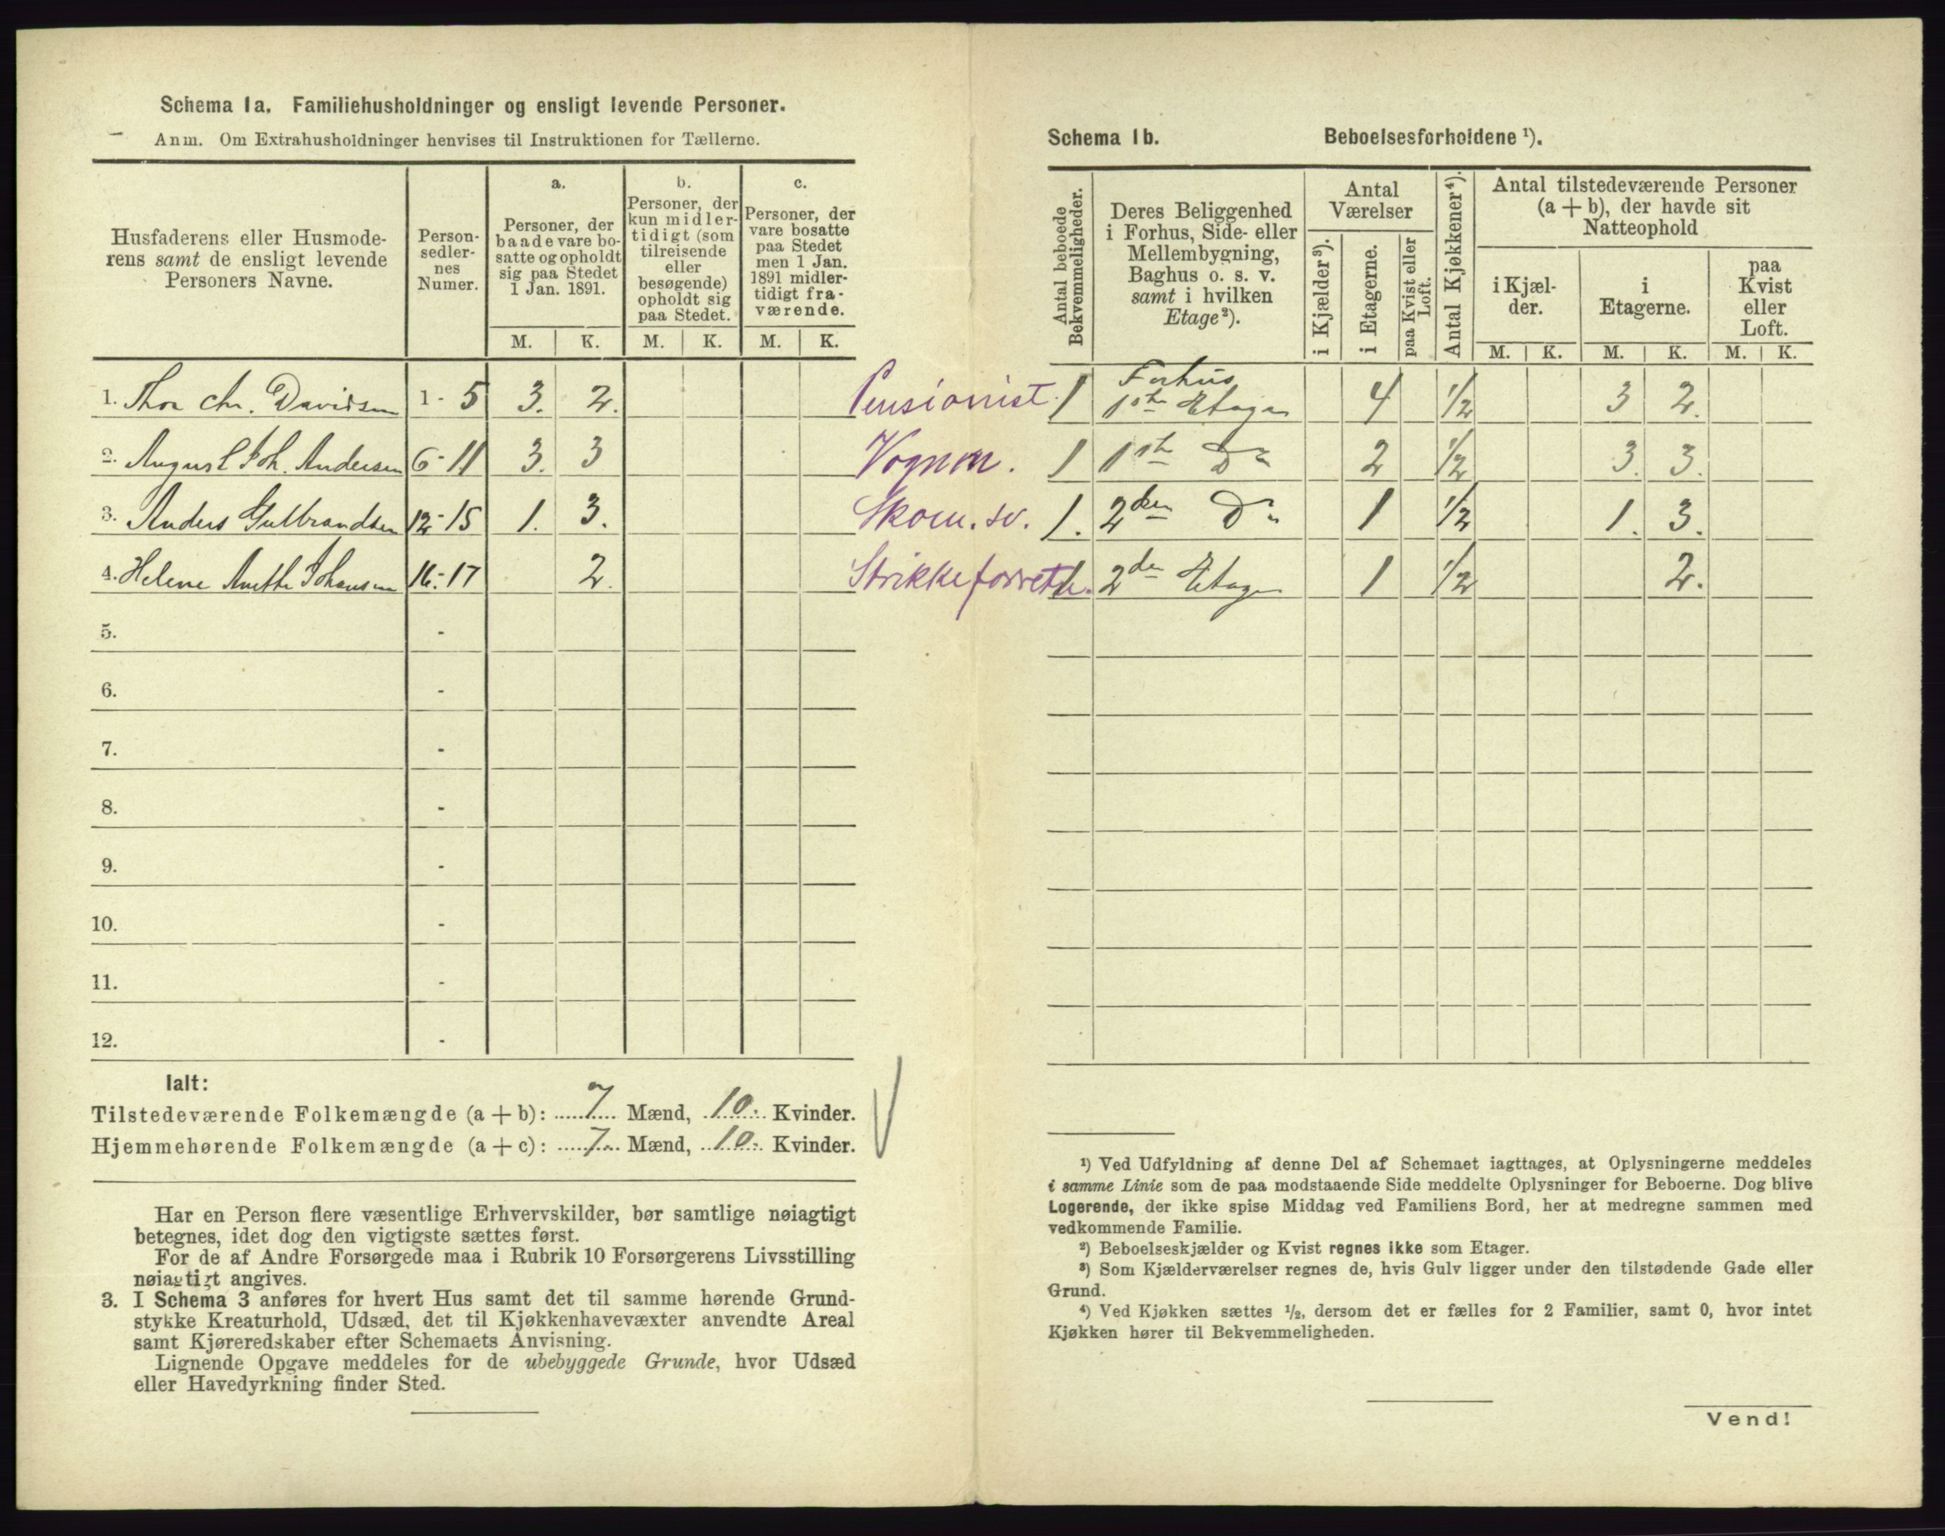 Schema 1a. Familiehusholdninger og ensligt levende Personer.
Anm. Om Extrahusholdninger henvises til Instruktionen for Tællerne.
Husfaderens eller Husmode-
rens samt de ensligt levende
Personers Navne.
Person-
sedler-
nes
Numer.
a.
Personer, der
baade vare bo-
satte og opholdt
sig paa Stedet
1 Jan. 1891.
b.
Personer, der
kun midler-
tidigt (som
tilreisende
eller
besøgende)
opholdt sig
paa Stedet.
c.
Personer, der
vare bosatte
paa Stedet
men 1 Jan.
1891 midler-
tidigt fra-
værende.
M. K. M. K. M. K.
1. Thor Chr. Davidsen 1 - 5 3. 2. Pensionist
2. August Joh. Andersen 6 - 11 3. 3 Vognm.
3. Anders Gulbrandsen 12 - 15 1. 3. Skom. sv.
4. Helene Anethe Johansen 16 - 17 2. Strikkeforretn.
5. -
6. -
7. -
8. -
9. -
10. -
11. -
12. -
Ialt:
Tilstedeværende Folkemængde (a + b): 7 Mænd, 10. Kvinder.
Hjemmehørende Folkemængde (a + c): 7 Mænd, 10. Kvinder.
Har en Person flere væsentlige Erhvervskilder, bør samtlige nøiagtigt
betegnes, idet dog den vigtigste sættes først.
For de af Andre Forsørgede maa i Rubrik 10 Forsørgerens Livsstilling
nøiagtigt angives.
3. I Schema 3 anføres for hvert Hus samt det til samme hørende Grund-
stykke Kreaturhold, Udsæd, det til Kjøkkenhavevæxter anvendte Areal
samt Kjøreredskaber efter Schemaets Anvisning.
Lignende Opgave meddeles for de ubebyggede Grunde, hvor Udsæd
eller Havedyrkning finder Sted.
Schema 1b. Beboelsesforholdene ¹).
Antal beboede
Bekvemmeligheder.
Deres Beliggenhed
i Forhus, Side- eller
Mellembygning,
Baghus o. s. v.
samt i hvilken
Etage²).
Antal
Værelser
i Kjælder³).
i Etagerne.
paa Kvist eller
Loft.
Antal Kjøkkener⁴).
Antal tilstedeværende Personer
(a + b), der havde sit
Natteophold
i Kjæl-
der.
i
Etagerne.
paa
Kvist
eller
Loft.
M. K. M. K. M. K.
1 Forhus
1ste Etage 4 1/2 3 2.
1 1ste Do 2 1/2 3. 3.
1. 2den Do 1 1/2 1. 3.
1 2den Etage 1 1/2 2.
¹) Ved Udfyldning af denne Del af Schemaet iagttages, at Oplysningerne meddeles
i samme Linie som de paa modstaaende Side meddelte Oplysninger for Beboerne. Dog blive
Logerende, der ikke spise Middag ved Familiens Bord, her at medregne sammen med
vedkommende Familie.
²) Beboelseskjælder og Kvist regnes ikke som Etager.
³) Som Kjælderværelser regnes de, hvis Gulv ligger under den tilstødende Gade eller
Grund.
⁴) Ved Kjøkken sættes ½, dersom det er fælles for 2 Familier, samt 0, hvor intet
Kjøkken hører til Bekvemmeligheden.
Vend!